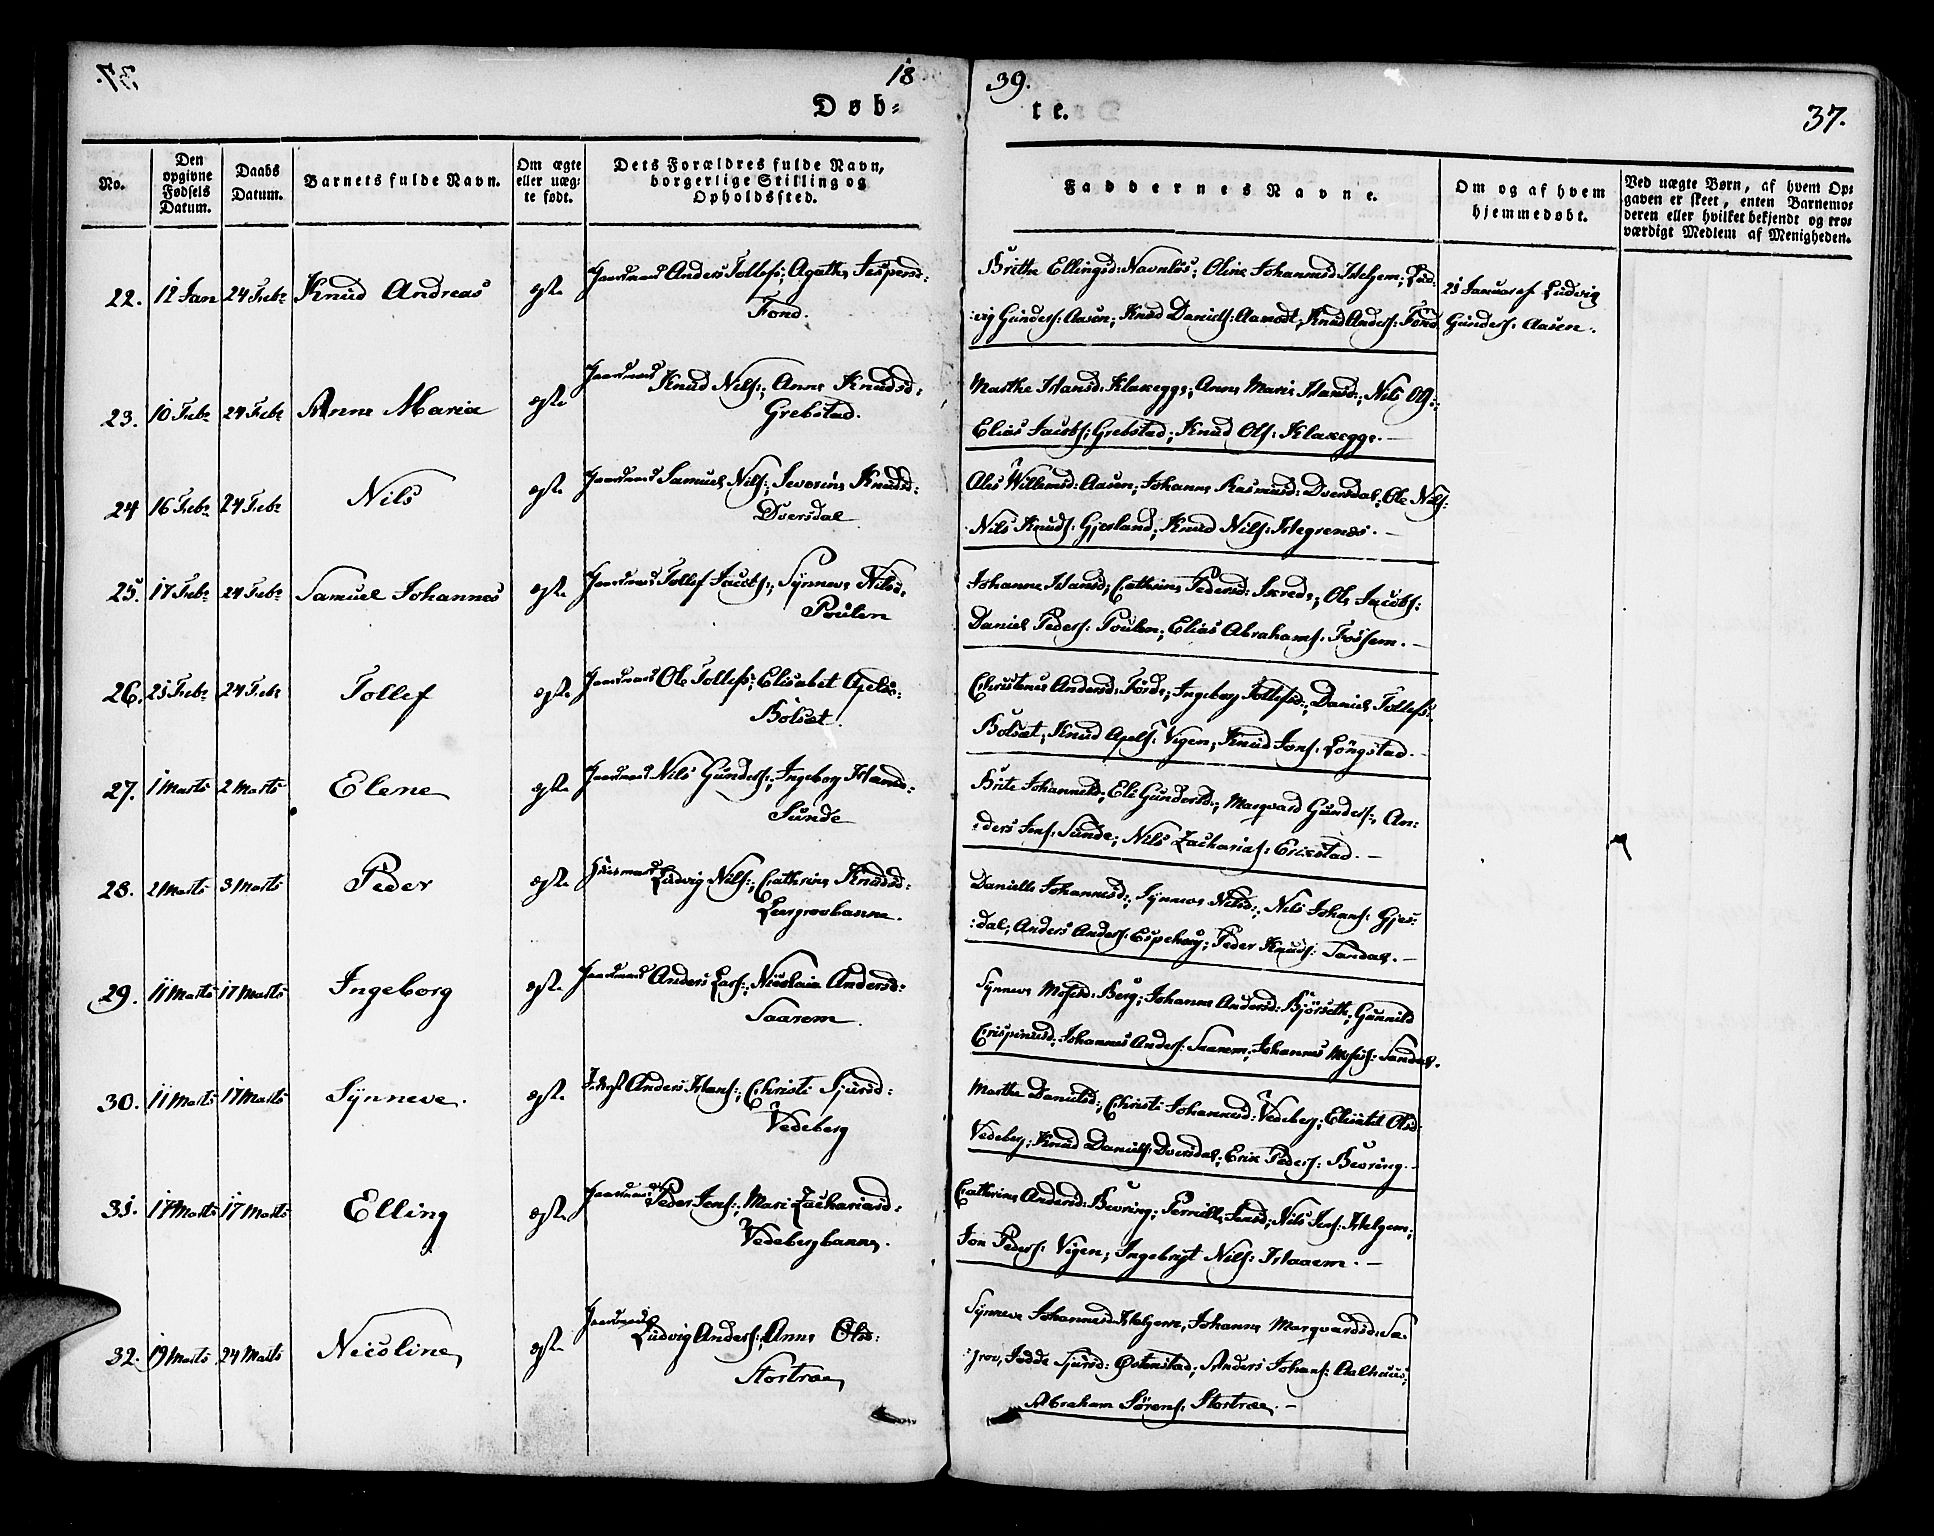 1839.
37.
Døbte.
No.
Den opgivne Fødsels Datum.
Daabs Datum.
Barnets fulde Navn.
Om ægte eller uægte født.
Dets Forældres fulde Navn, borgerlige Stilling og Opholdssted.
Faddernes Navne.
Om og af hvem hjemmedøbt.
Ved uægte Børn, af hvem Opgaven er skeet, enten Barnemoderen eller hvilket bekjendt og troværdigt Medlem af Menigheden.
22. 12 Jan 24 Febr Knud Andreas egte Gaardmand Anders Tollefs:, Agathe Jespersd:
Fond.
Brithe Ellingsd: Navnløs; Oline Johannesd Helgem; Lud:
vig Gunders: Aasen; Knud Daniels: Aamodt; Knud Anders: Fond
Januar af Ludvig
Gunders: Aasen.
23. 10 Febr 24 Febr Anne Maria egte Gaardmand Knud Nils:; Anne Knudsd:
Grebstad.
Marthe Hansd: Klakegge; Anne Marie Hansd:; Nils Ols:;
Elias Jacobs: Grebstad; Knud Ols: Klakegge.
24 16 Febr 24 Febr Nils egte Gaardmand Samuel Nils:; Severine Knudsd:
Dversdal
Willemsd: Aasen; Johanne Rasmusd: Dversdal; Ole Nils:
Nils Knuds: Gjesland; Knud Nils: Hegrenes.
25. 17 Febr 24 Febr Samuel Johannes egte Gaardmand Tollef Jacobs:; Synneve Nilsd.
Poulen
Johanne Hansd; Cathrine Pedersd: Skrede; Ole Jacobs:
Daniel Peders: Poulen; Elias Abrahams: Fossem.
26. 23 Febr 24 Febr Tollef egte Gaardmand Ole Tollefs:; Elisabet Apels:
Bolset.
Christense Andersd: Førde; Ingeborg Tollefsd:; Daniel Tollefs:
Bolset; Knud Apels: Vigen; Knud Jons: Løngstad.
27. 1 Marts 2 Marts Elene egte Gaardmand Nils Gunders:; Ingeborg Hansd:
Sunde
Brite Johannesd; Eli Gundersd:; Marqvard Gunders:, An:
ders Jens: Sunde; Nils Zacharias: Erikstad.
28. 2 Marts 3 Marts Peder egte Huusmand Ludvig Nils:; Cathrine Knudsd:
Danielle Johannesd:; Synneve Nilsd:; Nils Johans: Gjes:
dal; Anders Anders: Espehoug; Peder Knuds: Sandal.
29. 11 Marts 17 Marts Ingeborg egte Gaardmand Anders Lars:; Nicolaia Andersd:
Saarem.
Synneve Mosesd: Berg; Johanne Andersd: Bjørseth; Gunnild
Crispinusd; Johannes Anders: Saarem; Johannes Moses: Sandal.
30. 11 Marts 17 Marts Synneve. egte Anders Hans:; Christi Sjursd:
Vedeberg
Marthe Danielsd; Christi Johannesd: Vedeberg; Elisabet Olsd:
Vedeberg; Knud Daniels: Dversdal; Erik Peders: Bevring.
31. 14 Marts 17 Marts Elling egte Gaardmand Peder Jens:; Mari Zachariasd:
Vedebergbanne.
Cathrine Andersd: Bevring; Pernille Jensd; Nils Jens: Helgem;
Jon Peders: Vigen; Ingebrigt Nils: Haaem.
32. 19 Marts 24 Marts Nicoline egte Gaardmand Ludvig Anders:, Anne Olsd:
Stortræe
Synneve Johannesd Helgem, Johanne Marqvardsd: Sa:
Sjursd: Østenstad; Anders Johans: Aalhuus;
Abraham Sørens: Stortræe.